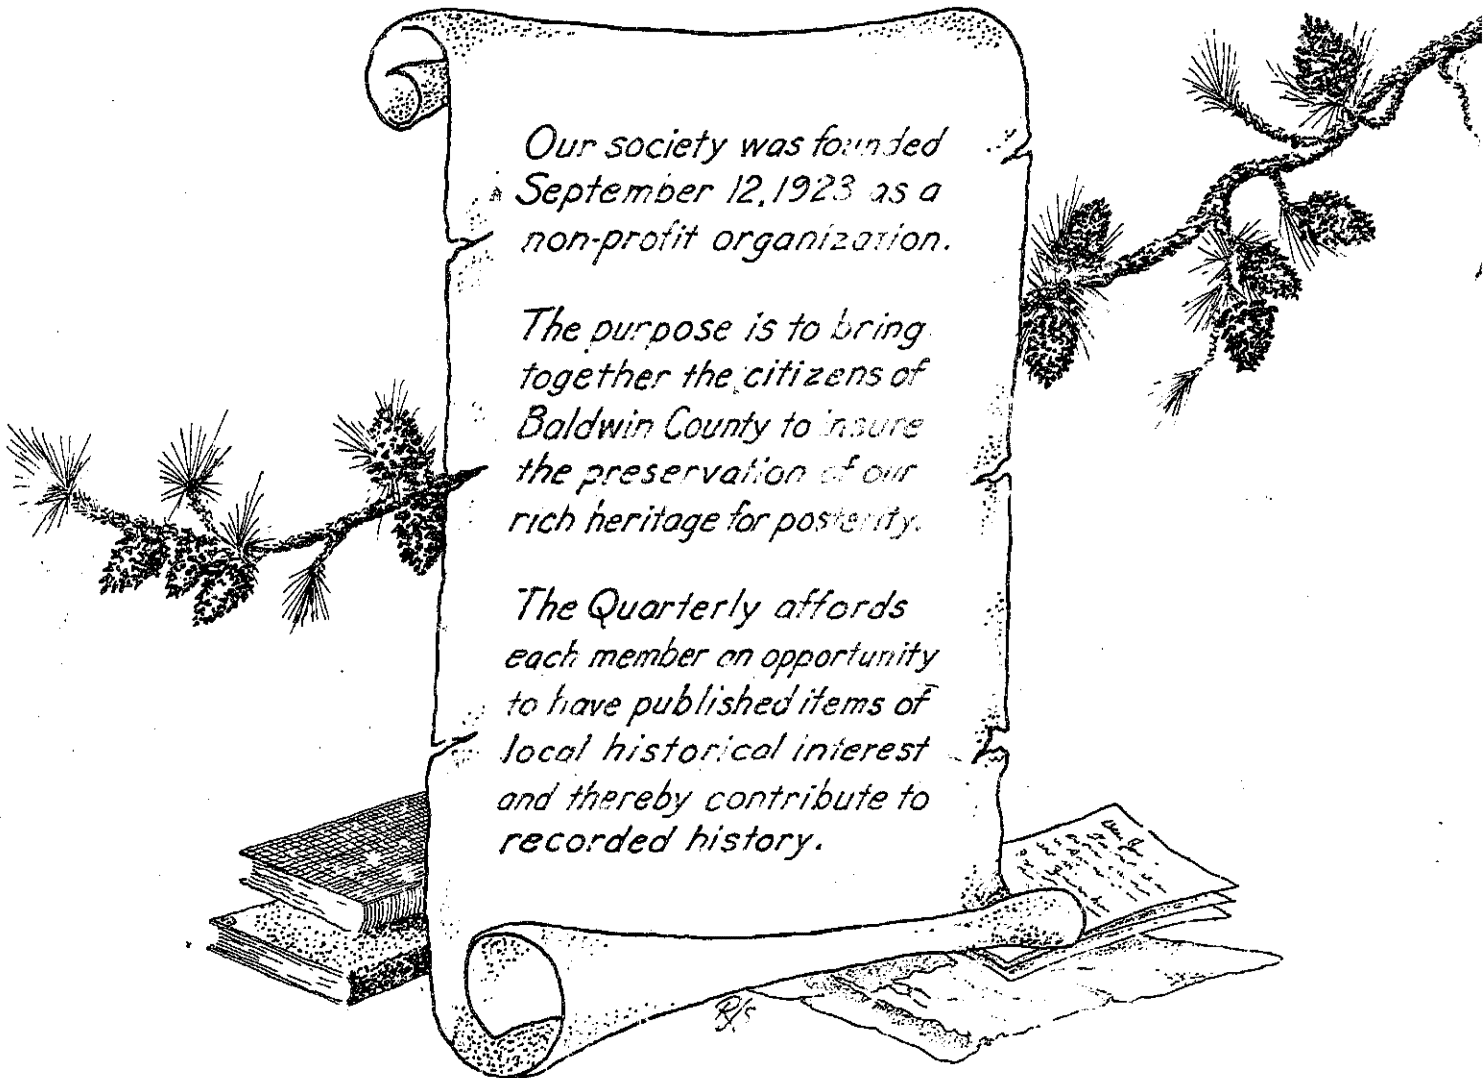 Our society was founded
September 12, 1923 as a
non-profit organization.
The purpose is to bring
together the citizens of
Baldwin County to insure
the preservation of our
rich heritage for posterity.
The Quarterly affords
each member an opportunity
to have published items of
local historical interest
and thereby contribute to
recorded history.